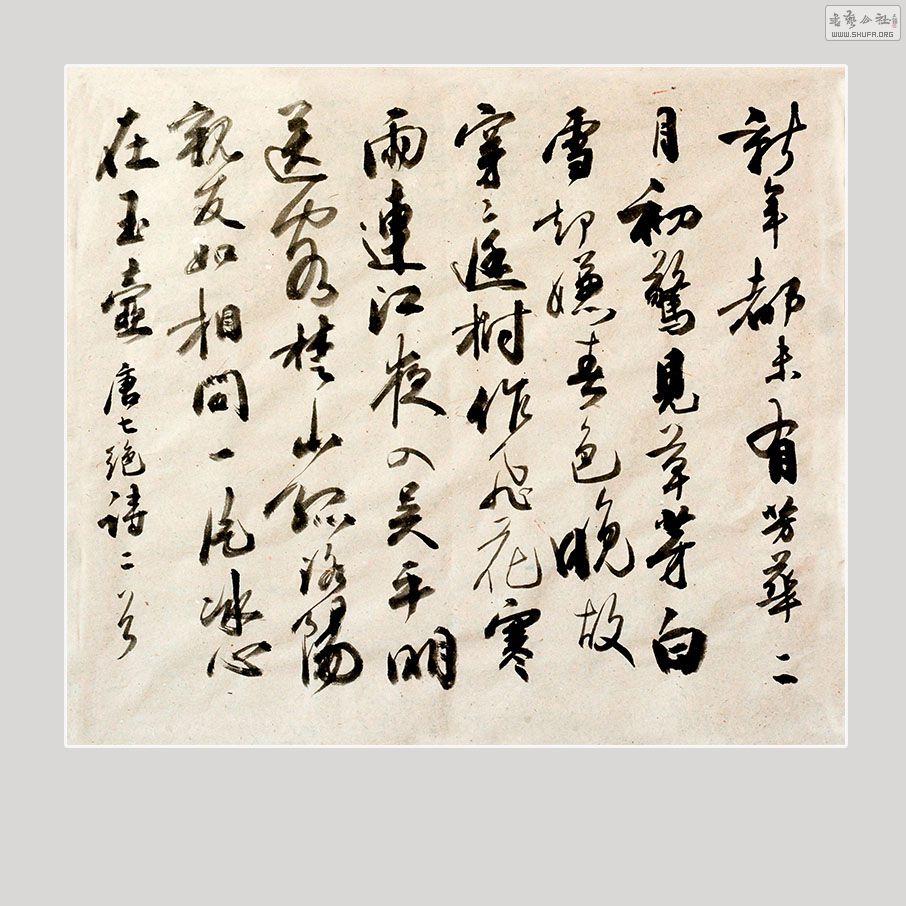 新年都未有芳華二
月初驚見草芽白
雪却嫌春色晚故
穿〻庭樹作飛花寒
雨連江夜入吴平明
送客楚山孤洛陽
親友如相問一片冰心
在玉壺 唐七絕詩二首
書藝公社
WWW.SHUFA.ORG